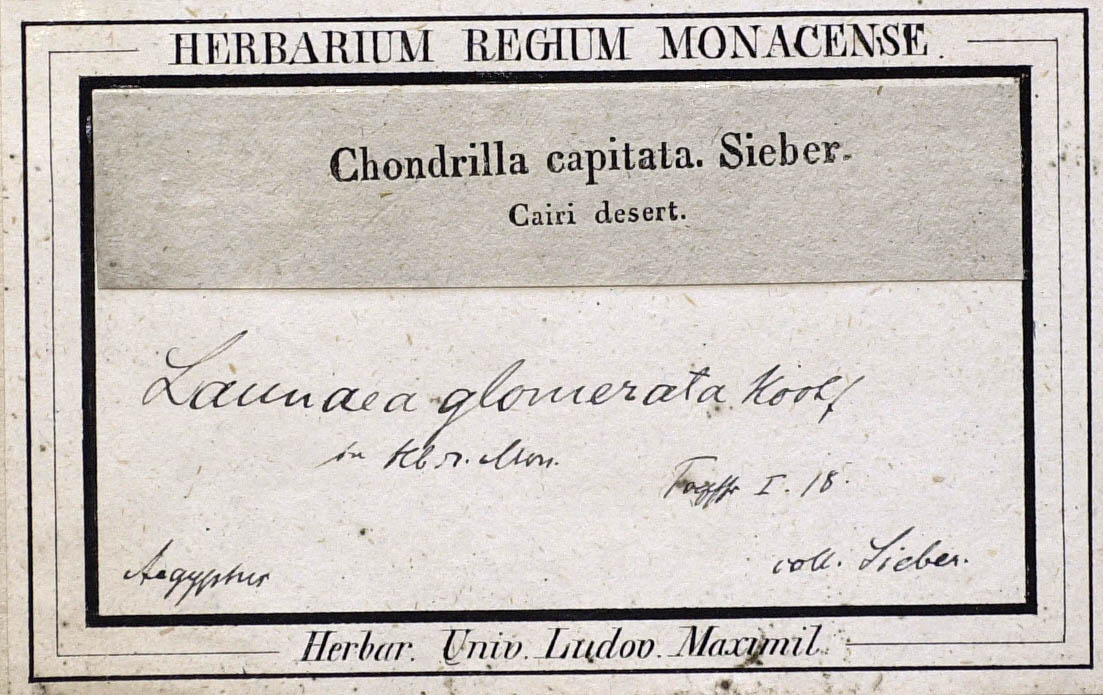 HERBARIUM REGIUM MONACENSE.
Chondrilla capitata. Sieber.
Cairi desert.
Launaea glomerata Hook f
in Hb. r. Mon.
I. 18.
Aegyptus
coll. Sieber.
Herbar. Univ. Ludov. Maximil.